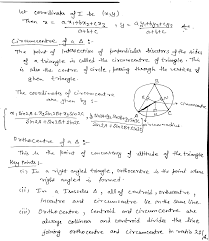 Let coordinate of I be (x,y)
Then x = ax₁+bx₂+cx₃ / a+b+c , y = ay₁+by₂+cy₃ / a+b+c
Circumcentre of a Δ :-
The point of intersection of perpendicular bisectors of the sides
of a triangle is called the circumcentre of triangle. This
is also the centre of circle, passing through the vertices of
given triangle.
The coordinates of circumcentre
are given by :-
Circumcentre
Orthocentre of a Δ :-
This is the point of concurrency of altitude of the triangle
Key points:
(i) In a right angled triangle, orthocentre is the point where
right angled is formed.
(ii) In a Isosceles Δ, all of centroid, orthocentre,
incentre and circumcentre lie on the same line.
(iii) Orthocentre, centroid and circumcentre are
always collinear and centroid divides the line
joining orthocentre and circumcentre in ratio 2:1